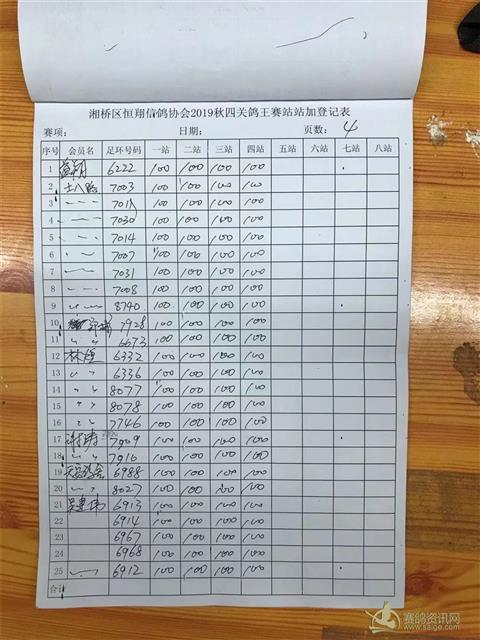 湘桥区恒翔信鸽协会2019秋四关鸽王赛站站加登记表
赛项： 日期： 页数：4
序号 会员名 足环号码 一站 二站 三站 四站 五站 六站 七站 八站
1 6222 100 100 100 100
2 7003 100 100 100 100
3 〃 100 100 100 100
4 〃 7030 100 100 100 100
5 〃 7014 100 100 100 100
6 〃 7007 100 100 100 100
7 〃 7031 100 100 100 100
8 〃 7008 100 100 100 100
9 〃 8740 100 100 100 100
10 7928 100 100 100 100
11 〃 6673 100 100 100 100
12 林恒 6332 100 100 100 100
13 〃 6336 100 100 100 100
14 〃 8077 100 100 100 100
15 〃 8078 100 100 100 100
16 〃 7746 100 100 100 100
17 谢涛 7909 100 100 100 100
18 〃 7916 100 100 100 100
19 6988 100 100 100 100
20 〃 8027 100 100 100 100
21 6913 100 100 100 100
22 6914 100 100 100 100
23 6967 100 100 100 100
24 6968 100 100 100 100
25 6912 100 100 100 100
合计
赛鸽资讯网
www.saige.com